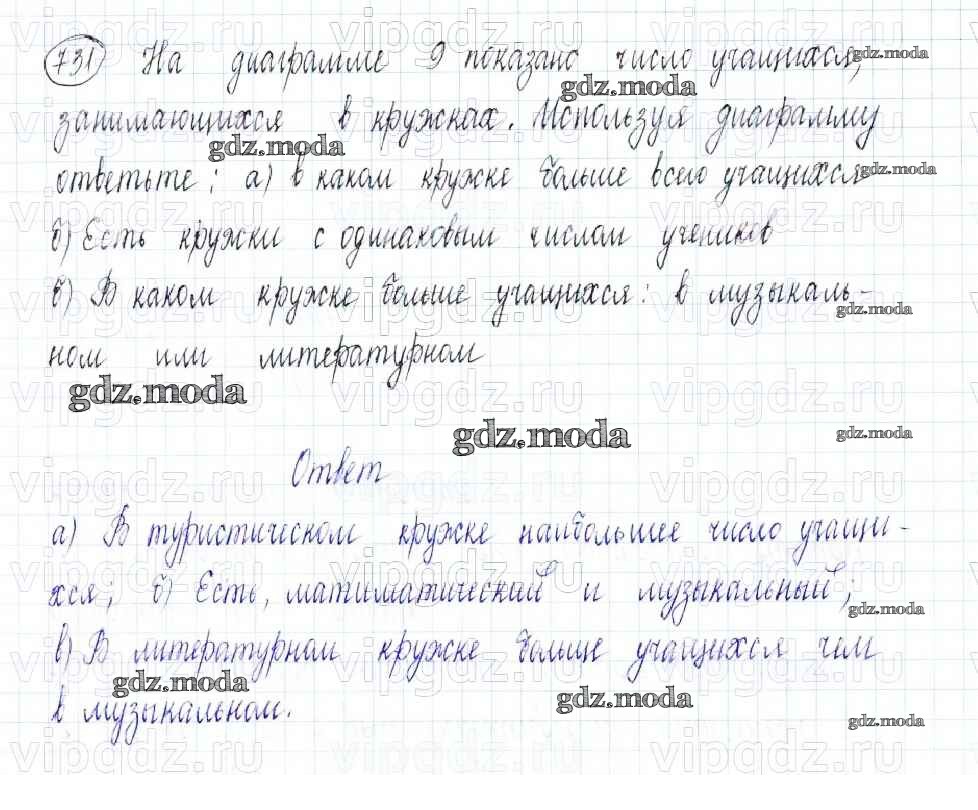 731 На диаграмме 9 показано число учащихся,
занимающихся в кружках. Используя диаграмму
ответьте: а) в каком кружке больше всего учащихся
б) Есть кружки с одинаковым числом учеников
в) В каком кружке больше учащихся: в музыкаль-
ном или литературном
Ответ
а) В туристическом кружке наибольшее число учащи-
хся; б) Есть, матиматический и музыкальный;
в) В литературном кружке больше учащихся чем
в музыкальном.
gdz.moda
vipgdz.ru